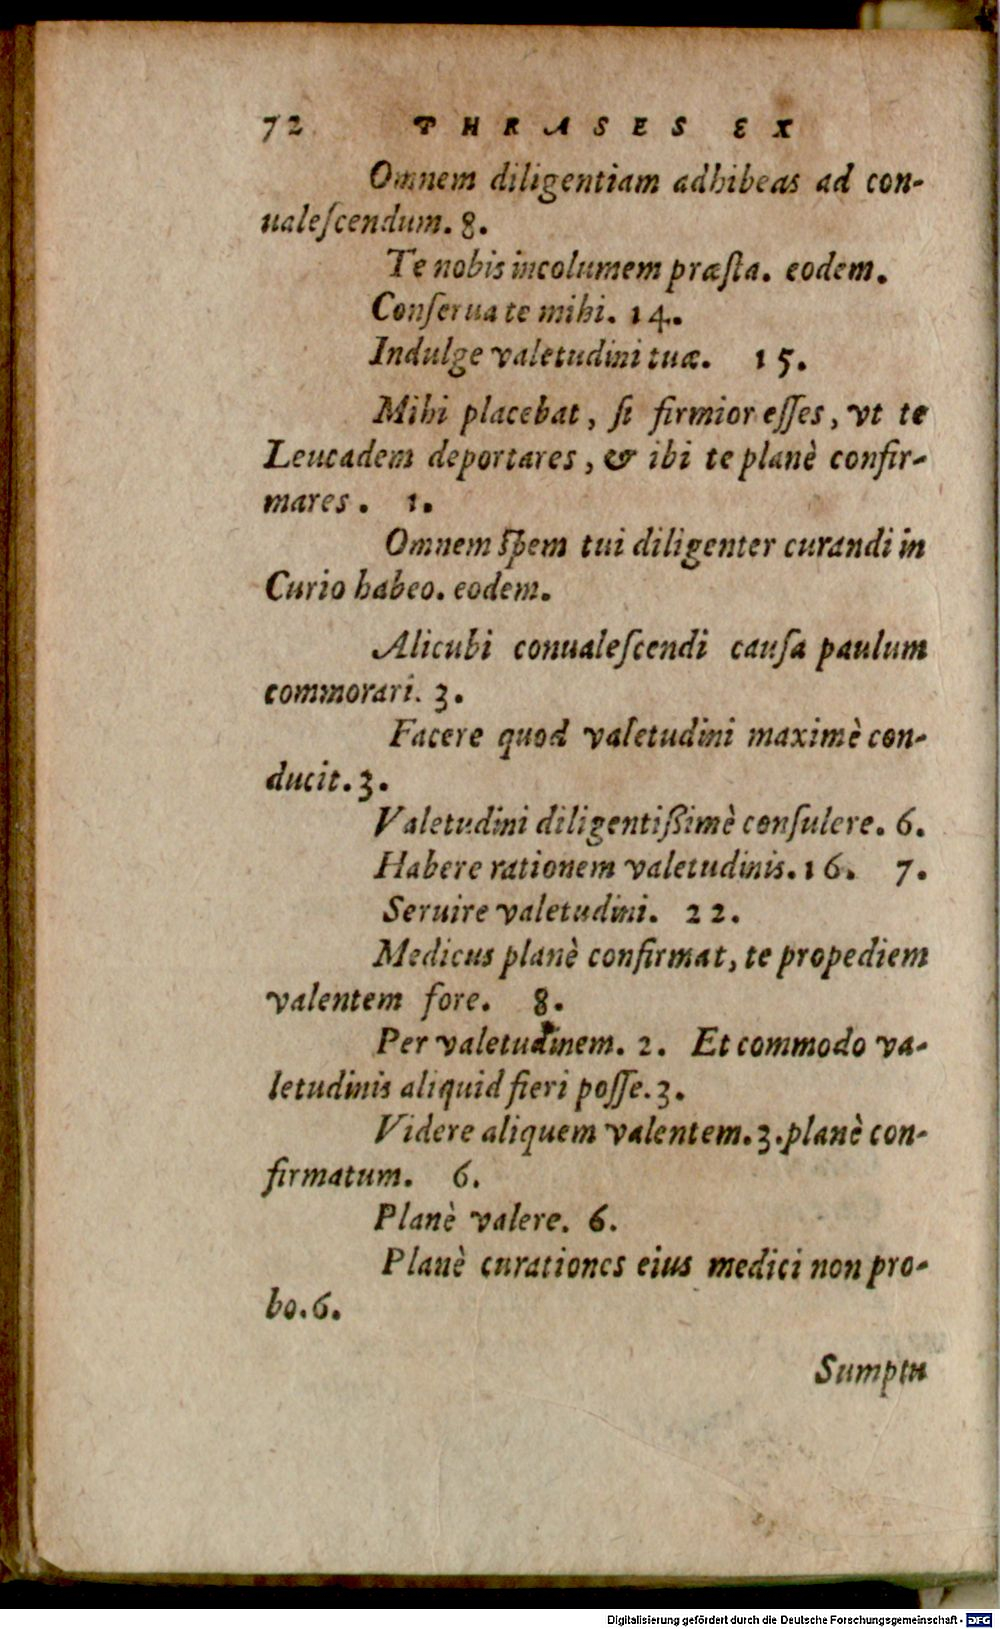 72 PHRASES EX
Omnem diligentiam adhibeas ad con-
ualeſcendum. 8.
Te nobis incolumem præſta. eodem.
Conſerua te mihi. 14.
Indulge valetudini tuæ. 15.
Mihi placebat, ſi firmior eſſes, vt te
Leucadem deportares, & ibi te planè confir-
mares. 1.
Omnem ſpem tui diligenter curandi in
Curio habeo. eodem.
Alicubi conualeſcendi cauſa paulum
commorari. 3.
Facere quod valetudini maximè con-
ducit. 3.
Valetudini diligentißimè conſulere. 6.
Habere rationem valetudinis. 16. 7.
Seruire valetudini. 22.
Medicus planè confirmat, te propediem
valentem fore. 8.
Per valetudinem. 2. Et commodo va-
letudinis aliquid fieri poſſe. 3.
Videre aliquem valentem. 3. planè con-
firmatum. 6.
Planè valere. 6.
Planè curationes eius medici non pro-
bo. 6.
Sumptu
Digitalisierung gefördert durch die Deutsche Forschungsgemeinschaft - DFG